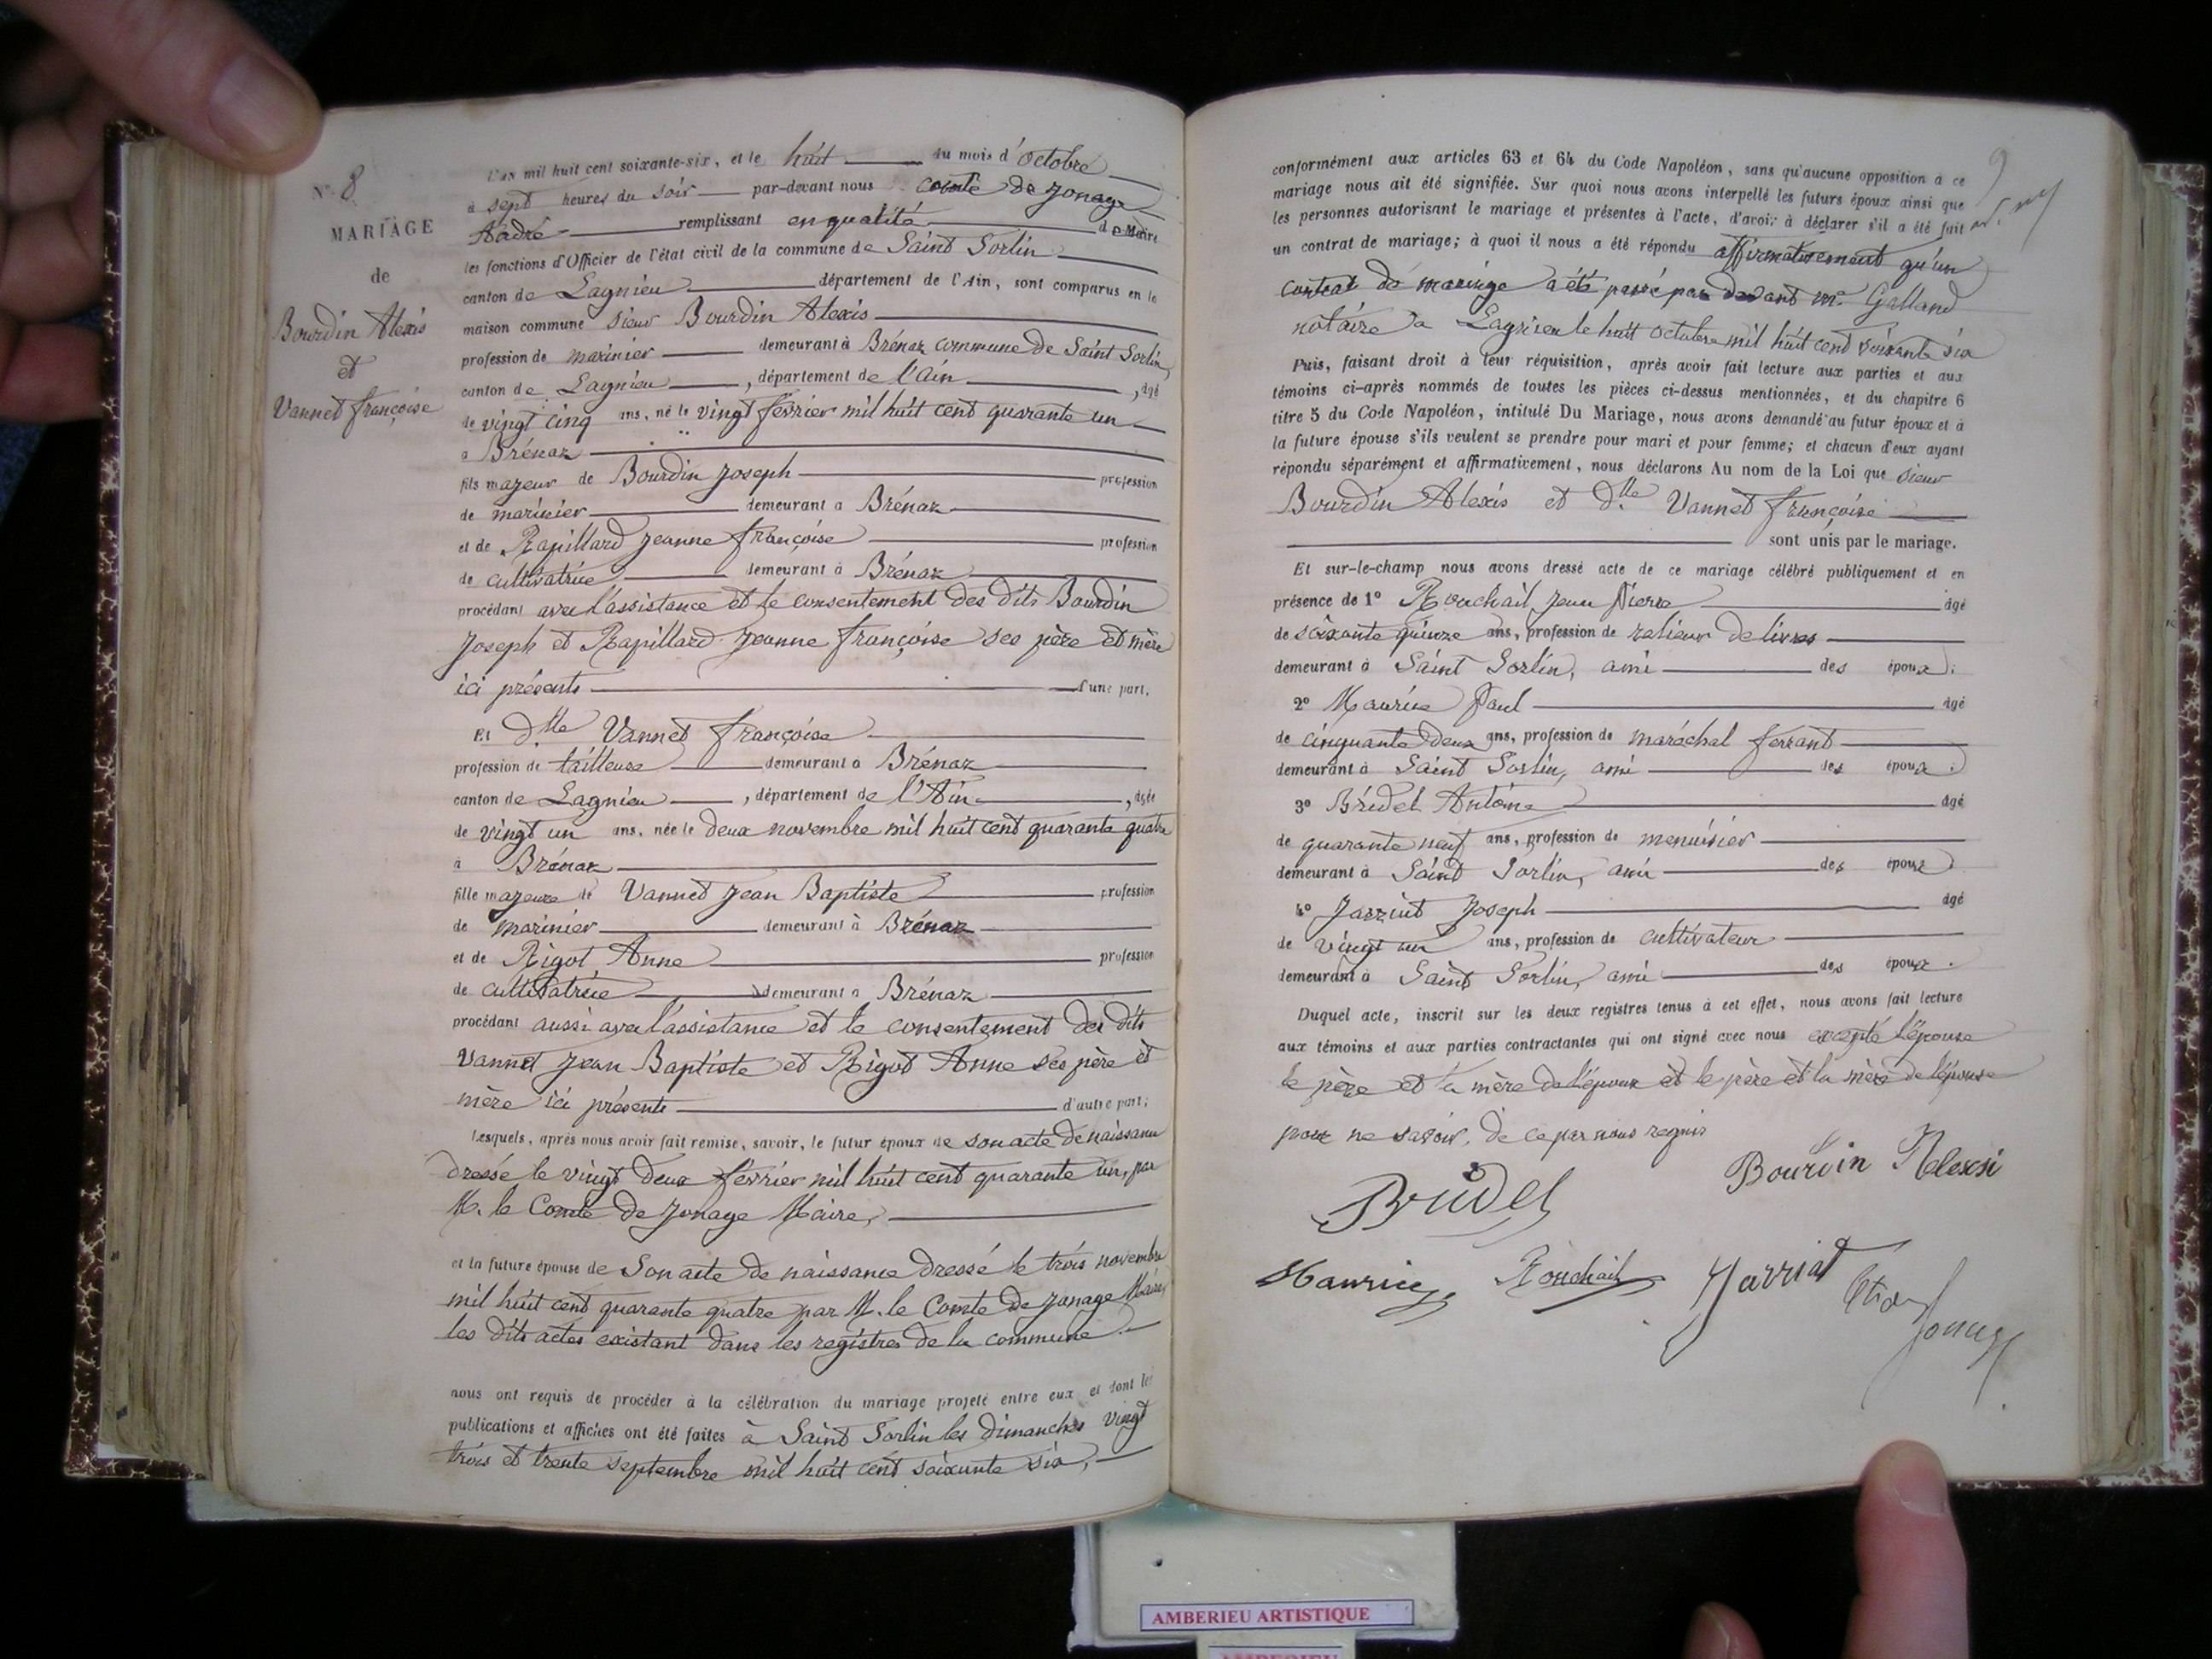 N° 8
MARIAGE
de
Bourdin Alexis
et
Vannet françoise
L'an mil huit cent soixante-six, et le huit du mois d'octobre
à sept heures du soir par-devant nous comte de Jonage
André remplissant en qualité de Maire
les fonctions d'Officier de l'état civil de la commune de Saint Sorlin
canton de Lagnieu département de l'Ain, sont comparus en la
maison commune sieur Bourdin Alexis
profession de marinier demeurant à Brénaz commune de Saint Sorlin
canton de Lagnieu, département de l'ain, âgé
de vingt cinq ans, né le vingt février mil huit cent quarante un
à Brénaz
fils majeur de Bourdin Joseph profession
de marinier demeurant à Brénaz
et de Rapillard Jeanne françoise profession
de cultivatrice, demeurant à Brénaz
procédant avec l'assistance et le consentement des dits Bourdin
Joseph et Rapillard Jeanne françoise ses père et mère
ici présents d'une part,
Et dlle Vannet françoise
profession de tailleuse demeurant à Brénaz
canton de Lagnieu, département de l'Ain, âgée
de vingt un ans, née le deux novembre mil huit cent quarante quatre
à Brénaz
fille majeure de Vannet Jean Baptiste profession
de marinier demeurant à Brénaz
et de Rigot Anne profession
de cultivatrice demeurant à Brénaz
procédant aussi avec l'assistance et le consentement des dits
Vannet Jean Baptiste et Rigot Anne ses père et
mère ici présents d'autre part;
Lesquels, après nous avoir fait remise, savoir, le futur époux de son acte de naissance
dressé le vingt deux février mil huit cent quarante un, par
M. le Comte de Jonage Maire,
et la future épouse de son acte de naissance dressé le trois novembre
mil huit cent quarante quatre par M. le Comte de Jonage Maire,
les dits actes existant dans les registres de la commune
nous ont requis de procéder à la célébration du mariage projeté entre eux et dont les
publications et affiches ont été faites à Saint Sorlin les dimanches vingt
trois et trente septembre mil huit cent soixante six,
conformément aux articles 63 et 64 du Code Napoléon, sans qu'aucune opposition à ce
mariage nous ait été signifiée. Sur quoi nous avons interpellé les futurs époux ainsi que
les personnes autorisant le mariage et présentes à l'acte, d'avoir à déclarer s'il a été fait
un contrat de mariage; à quoi il nous a été répondu affirmativement qu'un
contrat de mariage a été passé par devant me Galland
notaire à Lagnieu le huit octobre mil huit cent soixante six
Puis, faisant droit à leur réquisition, après avoir fait lecture aux parties et aux
témoins ci-après nommés de toutes les pièces ci-dessus mentionnées, et du chapitre 6
titre 5 du Code Napoléon, intitulé Du Mariage, nous avons demandé au futur époux et à
la future épouse s'ils veulent se prendre pour mari et pour femme; et chacun d'eux ayant
répondu séparément et affirmativement, nous déclarons Au nom de la Loi que sieur
Bourdin Alexis et dlle Vannet françoise
sont unis par le mariage.
Et sur-le-champ nous avons dressé acte de ce mariage célébré publiquement et en
présence de 1° Rouchail Jean Pierre âgé
de soixante quinze ans, profession de relieur de livres
demeurant à Saint Sorlin, ami des époux.
2° Maurice Paul âgé
de cinquante deux ans, profession de maréchal ferrant
demeurant à Saint Sorlin, ami des époux.
3° Bridel Antoine âgé
de quarante neuf ans, profession de menuisier
demeurant à Saint Sorlin, ami des époux
4° Jarriat Joseph âgé
de vingt un ans, profession de cultivateur
demeurant à Saint Sorlin, ami des époux.
Duquel acte, inscrit sur les deux registres tenus à cet effet, nous avons fait lecture
aux témoins et aux parties contractantes qui ont signé avec nous excepté l'épouse
le père et la mère de l'époux et le père et la mère de l'épouse
pour ne savoir, de ce par nous requis
Bourdin Alexsi
Bridel
Maurice Rouchail Jarriat
Jonage
AMBERIEU ARTISTIQUE
AMBERIEU